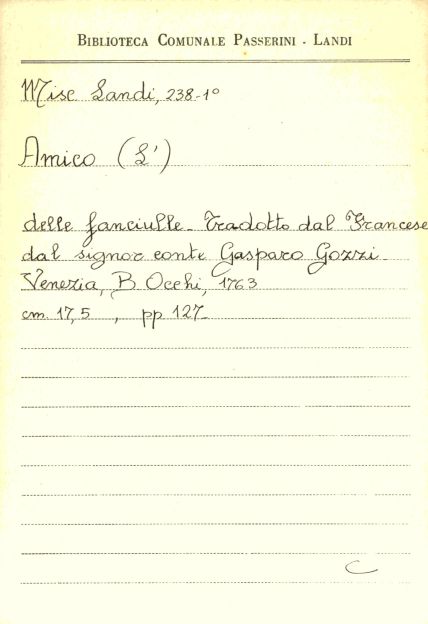 BIBLIOTECA COMUNALE PASSERINI - LANDI
Misc Landi, 238-1°
Amico (L')
delle fanciulle - Tradotto dal Francese
dal signor conte Gasparo Gozzi -
Venezia, B. Occhi, 1763
cm. 17,5 , pp. 127
C